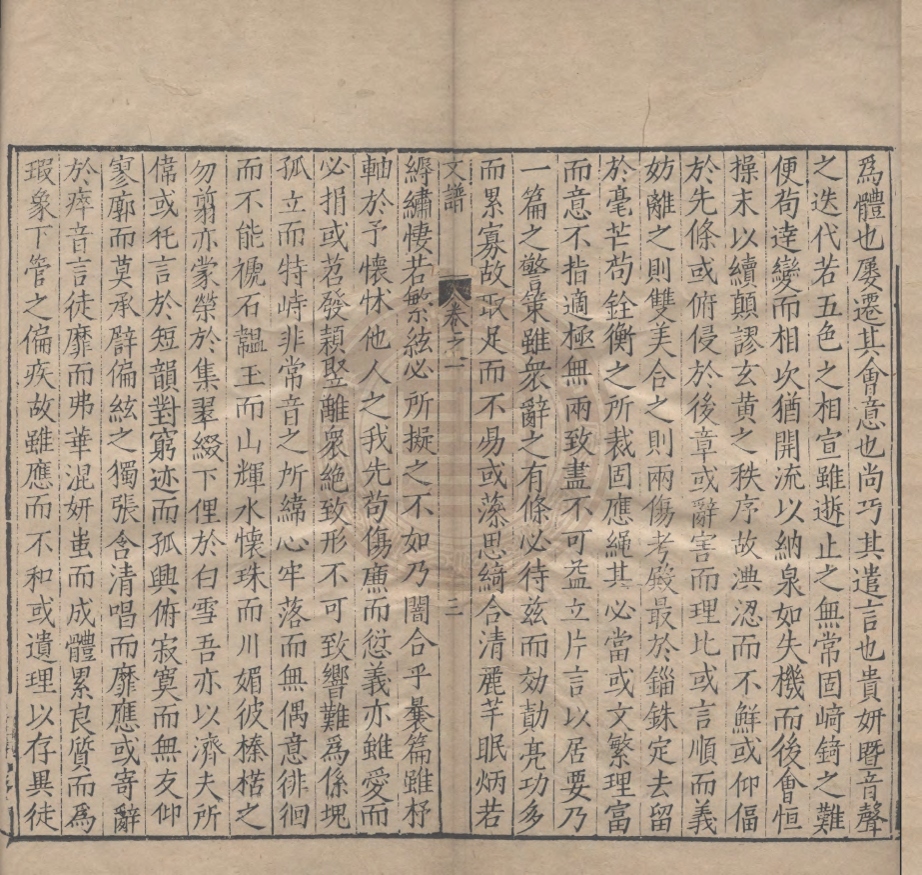 爲體也屡遷其會意也尚巧其遣言也貴妍暨音聲
之迭代若五色之相宣雖逝止之無常固崎錡之難
便苟達變而相次猶開流以納泉如失機而後會恒
操末以續顛謬玄黃之秩序故淟涊而不鮮或仰偪
於先條或俯侵於後章或辭害而理比或言順而義
妨離之則雙美合之則兩傷考殿最於錙銖定去留
於毫芒苟銓衡之所裁固應繩其必當或文繁理富
而意不指適極無兩致盡不可益立片言以居要乃
一篇之警策雖衆辭之有條必待兹而効勣亮功多
而累寡故取足而不易或藻思綺合清麗芊眠炳若
文譜 卷之一 三
縟繡悽若繁絃必所擬之不如乃闇合乎曩篇雖杼
軸於予懷怵他人之我先苟傷亷而愆義亦雖愛而
必捐或苕發穎竪離衆絶致形不可致響難爲係塊
孤立而特峙非常音之所緯心牢落而無偶意徘徊
而不能禠石韞玉而山輝水懷珠而川媚彼榛楛之
勿翦亦蒙榮於集翠綴下俚於白雪吾亦以濟夫所
偉或托言於短韻對窮迹而孤興俯寂寞而無友仰
寥廓而莫承辟偏絃之獨張含清唱而靡應或寄辭
於瘁音言徒靡而弗華混妍蚩而成體累良質而爲
瑕象下管之偏疾故雖應而不和或遺理以存異徒